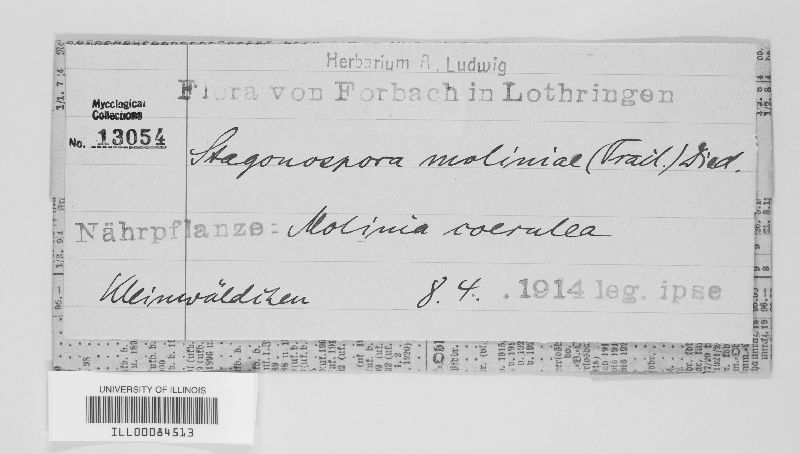 Herbarium A. Ludwig
Flora von Forbach in Lothringen
Mycological
Collections
No. 13054
Stagonospora moliniae (Trail.) Died.
Nährpflanze: Molinia coerulea
Kleinwäldchen 8. 4. . 1914 leg. ipse
UNIVERSITY OF ILLINOIS
ILL00084513